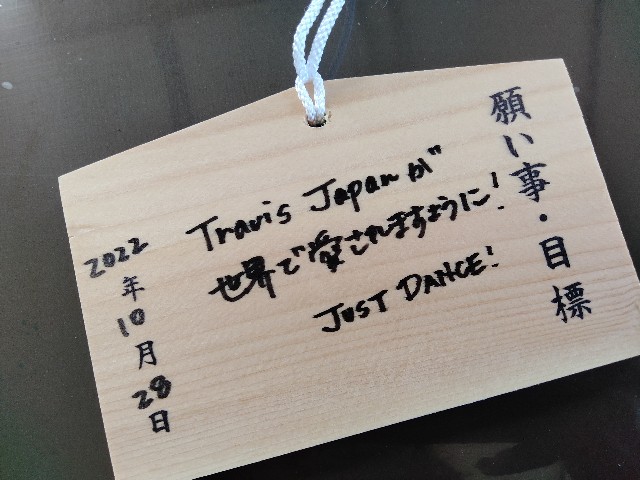 願い事・目標
Travis Japanが
世界で愛されますように!
JUST DANCE!
2022年10月28日